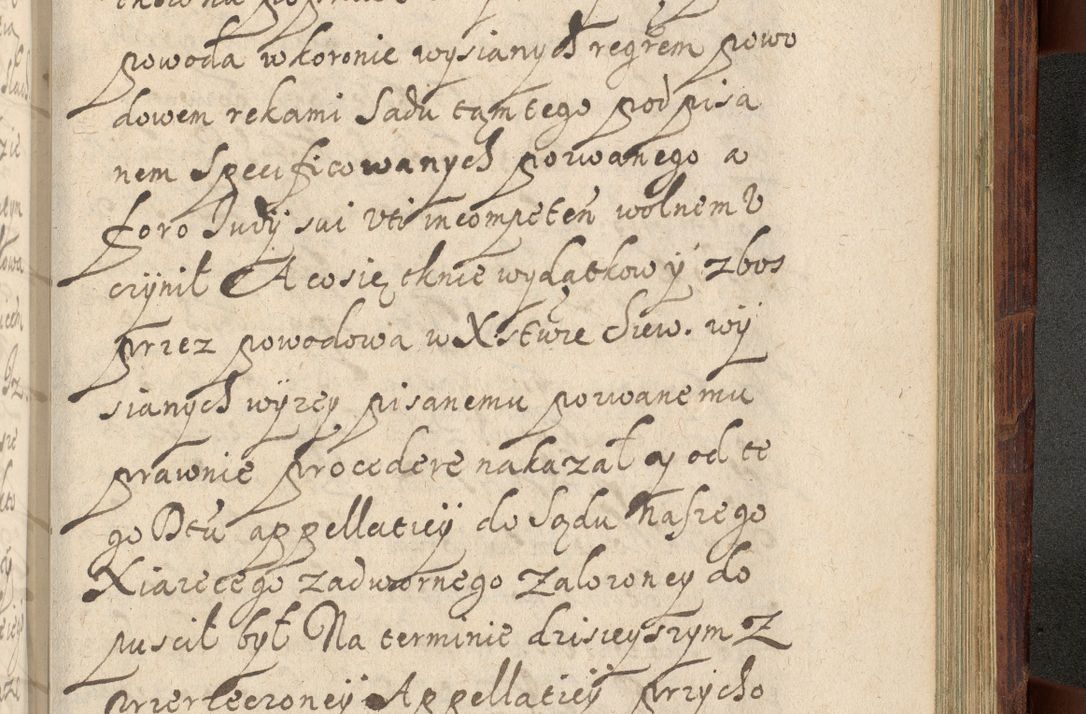 powoda w koronie wysianych regrem powo
dowem rekami Sadu tamtego podpisa
nem Specificowanych pozwanego a
foro Judÿ sui Vti incompeteñ wolnem V
czÿnił A cosię tknie wydątkowÿ zbos
przez powodowa w X:stwre Siew. wÿ
sianych wÿzey pisanemu pozwanemu
prawnie procedere nakazał aÿ od te
go Dtu appellacieÿ do Sądu Naszego
Xiazecego zadwornego Zalozoney do
puscił był Na terminie dzisieyszym Z
przerzeczoneÿ Appellacieÿ przÿcho